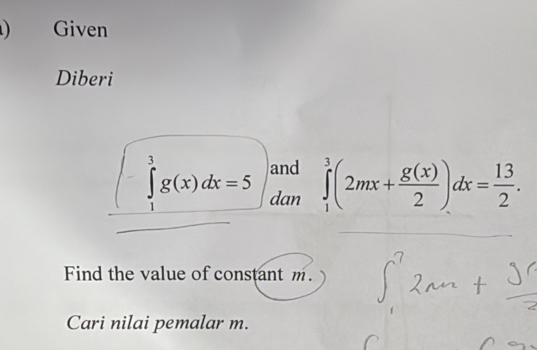 Given
Diberi
∫₁³ g(x) dx = 5 and dan ∫₁³ (2mx + g(x)/2) dx = 13/2.
Find the value of constant m.
∫ 2m +
Cari nilai pemalar m.